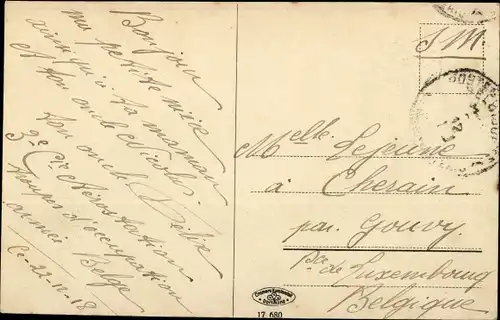 Bonjour
ma petite nièce
ainsi qu'à ta maman
et ton oncle Nicolas.
ton oncle Félix
3e Cie Aérostation
troupes d'occupation
armée Belge
Ce 22-12-18
S.M.
Melle Lejeune
à Cherain
par Gouvy
Pce de Luxembourg
Belgique
17 680